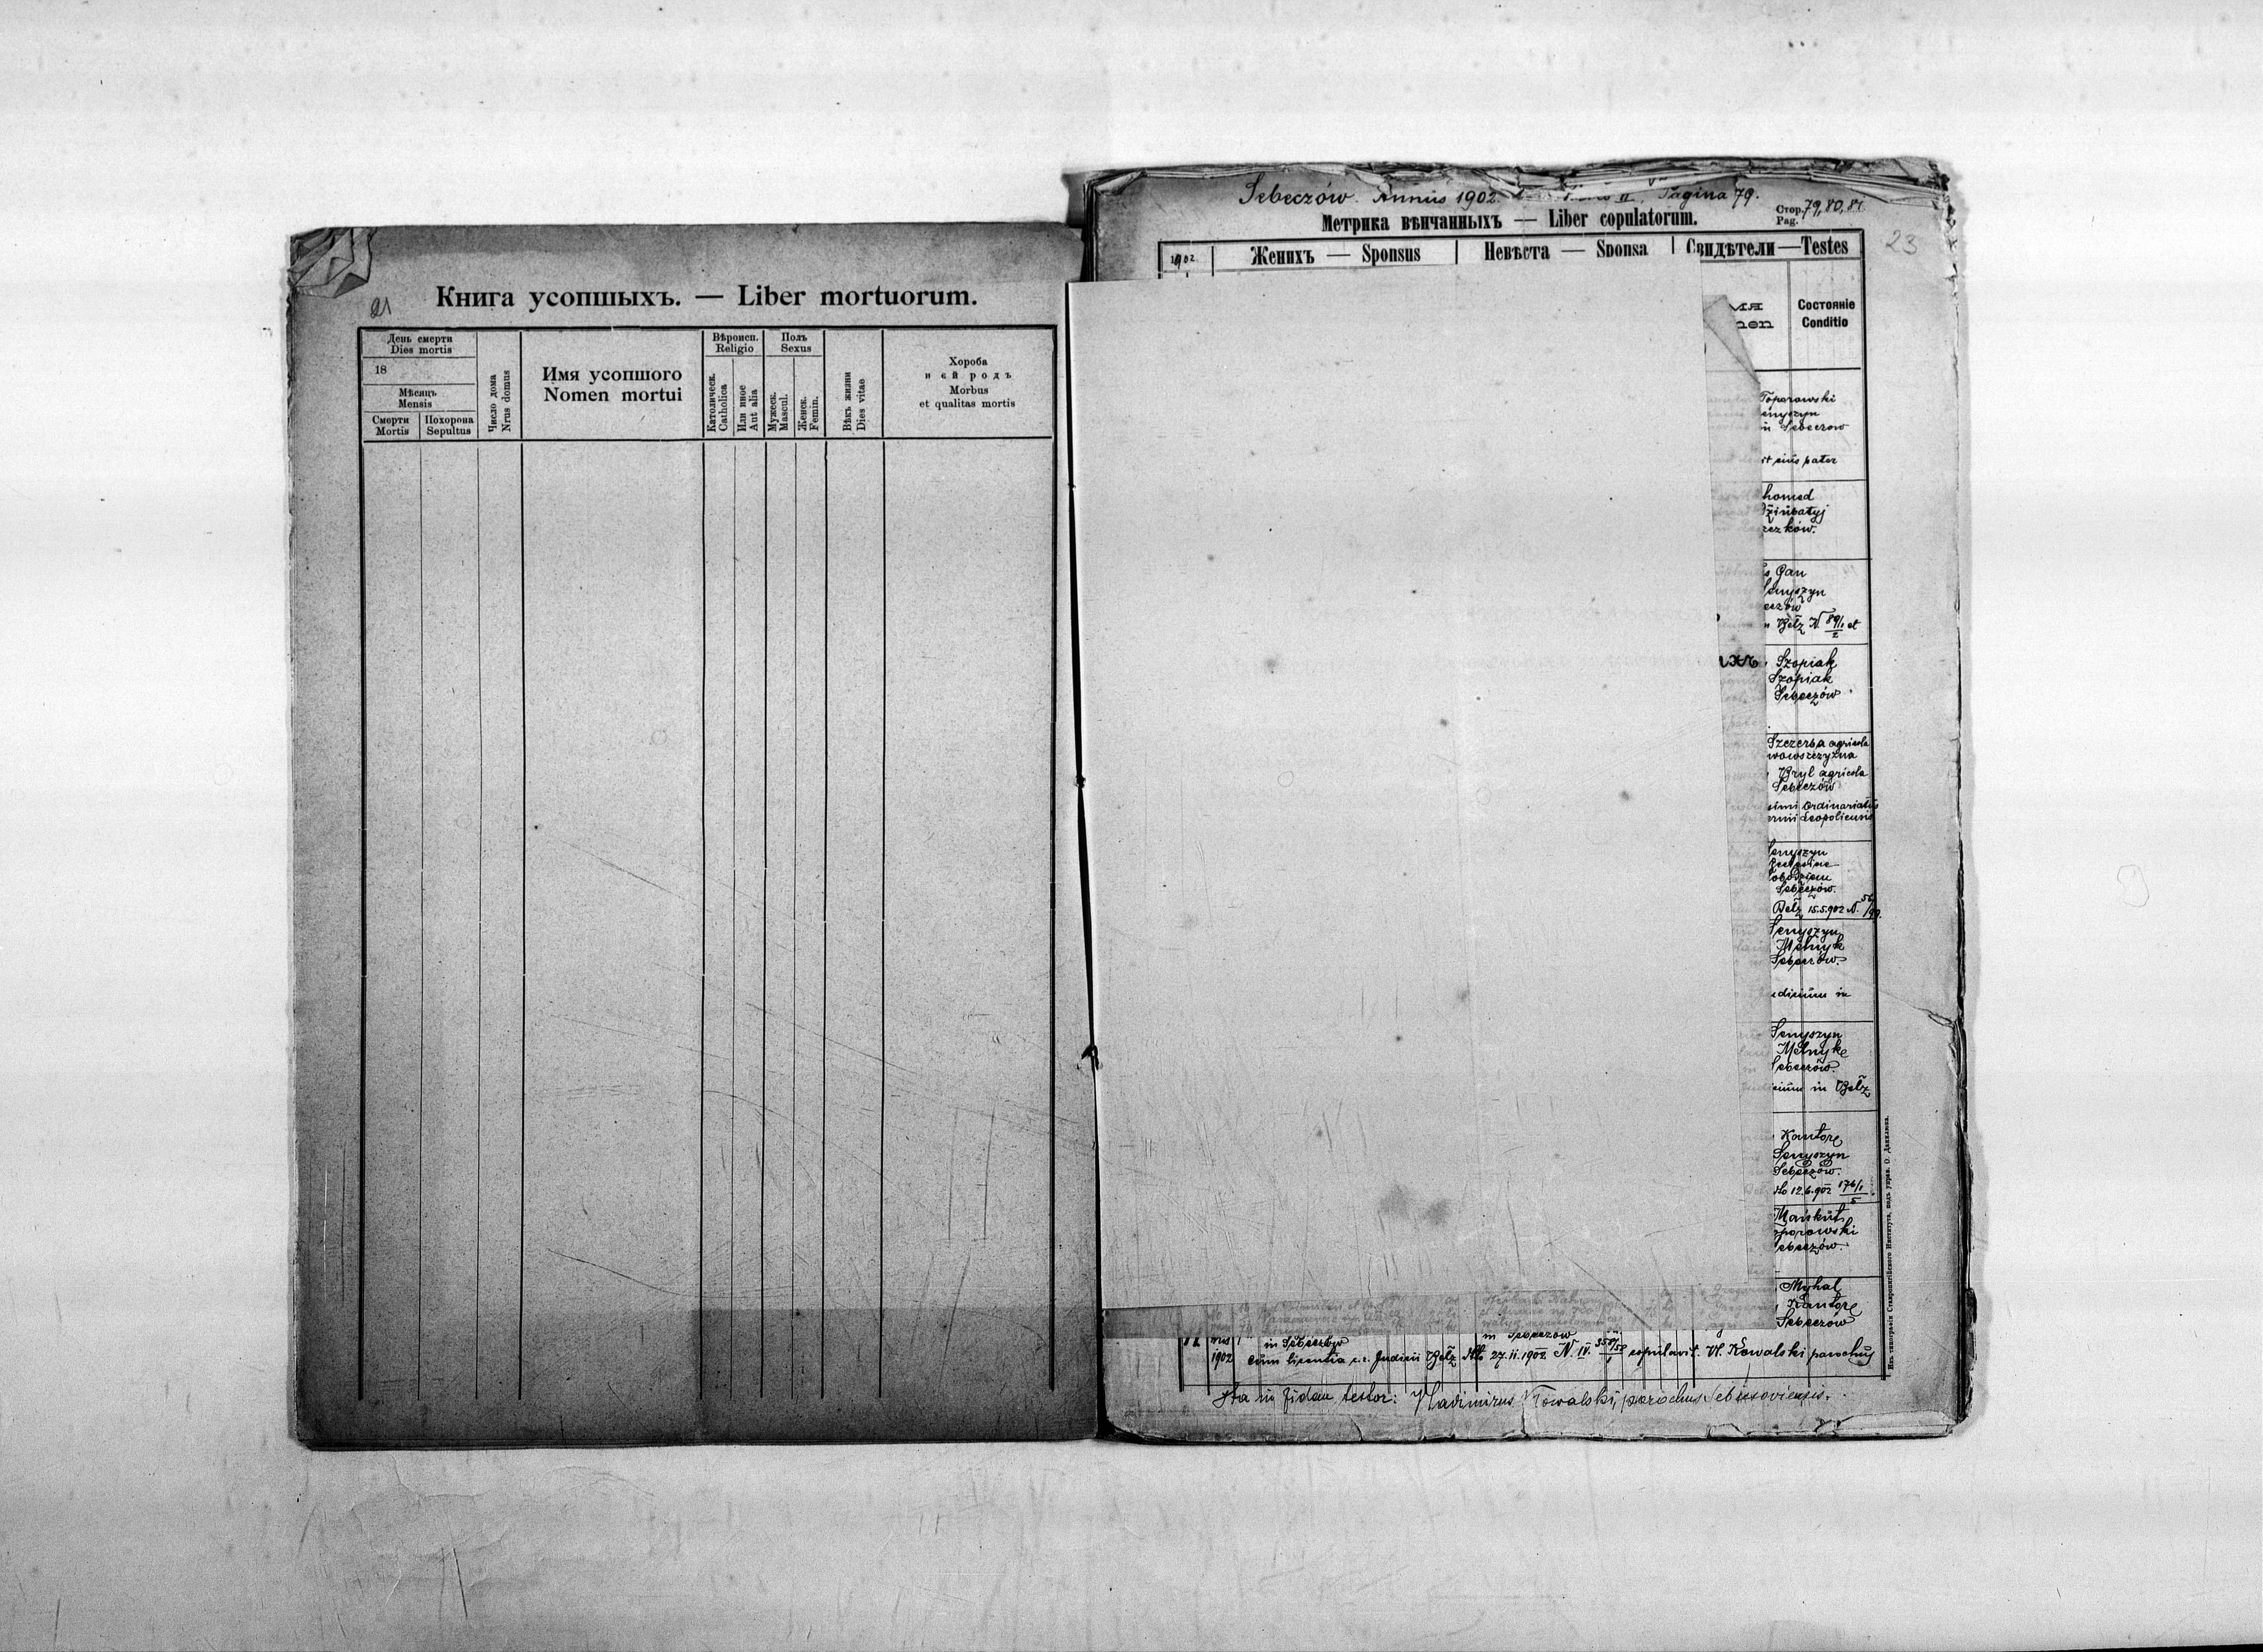 21
Книга усопшыхъ. — Liber mortuorum.
День смерти
Dies mortis
18
Мѣсяць
Mensis
Смерти
Mortis
Похорона
Sepultus
Число дома
Nrus domus
Имя усопшого
Nomen mortui
Вѣроисп.
Religio
Католическ.
Catholica
Или иное
Aut alia
Полъ
Sexus
Мужеск.
Mascul.
Женск.
Femin.
Вѣкъ жизни
Dies vitae
Хороба
и єй родъ
Morbus
et qualitas mortis
Sebeczów. Annus 1902. Pagina 79.
Метрика вѣнчанныхъ — Liber copulatorum.
Стор. 79, 80, 81
Pag.
23
1902.
Женихъ — Sponsus
Невѣста — Sponsa
Свидѣтели — Testes
мя
men
Состояніе
Conditio
Toporowski
enyszyn
in Sebeczow
it eius pater
homed
zków.
s Gan
Senyszyn
eczów
Belz N. 89/1 et
2
ихъ
Szopiak
Szopiak
Sebeczów
Szczerba agricola
nowoszczyzna
Bryl agricola
Sebeczów
simi Ordinariatus
Leopoliensis
Senyszyn
Sebeczów.
Belz 15.5.902 N.
Senyszyn
Melnyk
Sebeczów.
udicium in
Senyszyn
Melnyk
Sebeczów.
icium in Belz
Kantor
Senyszyn
Sebeczów.
dto 12.6.902 176/1
5
Mańkut
oporowski
ebeczów.
Myhal
Kantor
Sebeczów
in Sebeczów
in Sebeczów
1902 cum licentia c. r. Judicii Belz dto 27.11.1902 N. IV. 358/58 copulavit. Vl. Kowalski parochus
1
Ita in fidem testor: Vladimirus Kowalski, parochus Sebeczoviensis.
Изъ типографіи Ставропигійского Института, подъ управ. О. Данилюка.